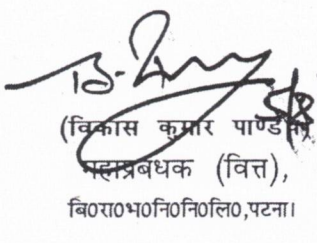 (विकास कुमार पाण्डेय)
महाप्रबंधक (वित्त),
बि0रा0भ0नि0नि0लि0,पटना।